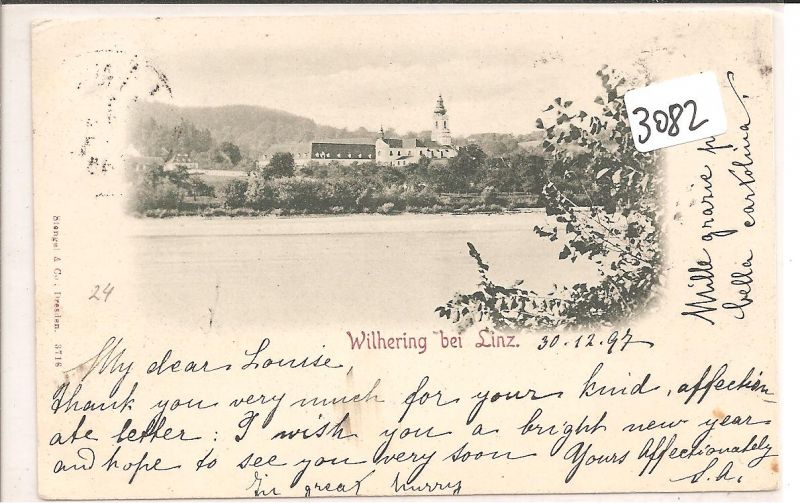 3082
Mille grazie p
bella cartolina!
Stengel & Co., Dresden. 3716
24
Wilhering bei Linz. 30.12.97
My dear Louise,
thank you very much for your kind, affection-
ate letter: I wish you a bright new year
and hope to see you very soon Yours Affectionately
In great hurry S.A.